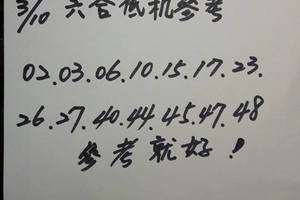 3/10 六合低机參考
02.03.06.10.15.17.23.
26.27.40.44.45.47.48
參考就好!